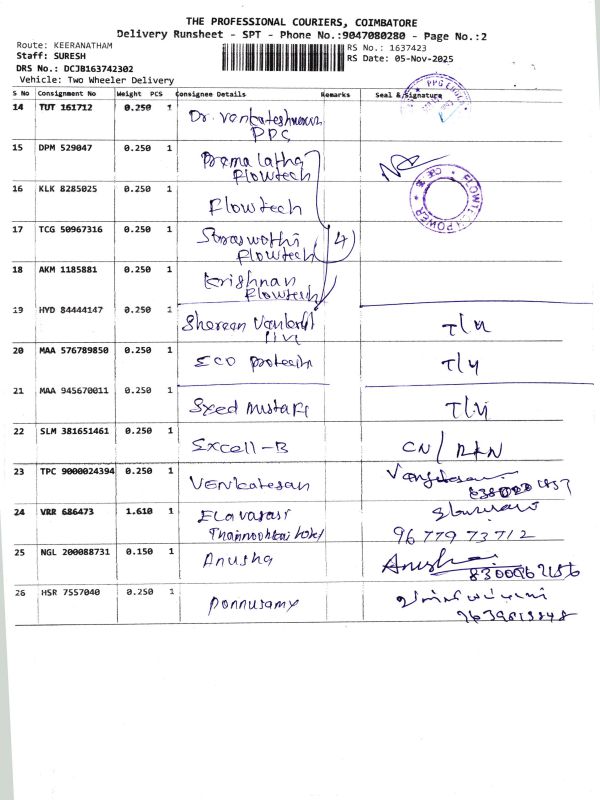 THE PROFESSIONAL COURIERS, COIMBATORE
Delivery Runsheet - SPT - Phone No.:9047080280 - Page No.:2
Route: KEERANATHAM RS No.: 1637423
Staff: SURESH RS Date: 05-Nov-2025
DRS No.: DCJB163742302
Vehicle: Two Wheeler Delivery
S No Consignment No Weight PCS Consignee Details Remarks Seal & Signature
14 TUT 161712 0.250 1 Dr. Venkateshwaran
PPG
15 DPM 529047 0.250 1 Prema latha
Flowtech
16 KLK 8285025 0.250 1 Flowtech
FLOWTECH POWER
17 TCG 50967316 0.250 1 Saraswathi 4
Flowtech
18 AKM 1185881 0.250 1 Krishnan
Flowtech
19 HYD 84444147 0.250 1
20 MAA 576789850 0.250 1 ECO protech
21 MAA 945670011 0.250 1 Syed
22 SLM 381651461 0.250 1 Excell-B CN/
23 TPC 9000024394 0.250 1 Venkatesan
24 VRR 686473 1.610 1 Elavarasi
96779 73712
25 NGL 200088731 0.150 1 Anusha Anusha
8300962156
26 HSR 7557040 0.250 1 Ponnusamy